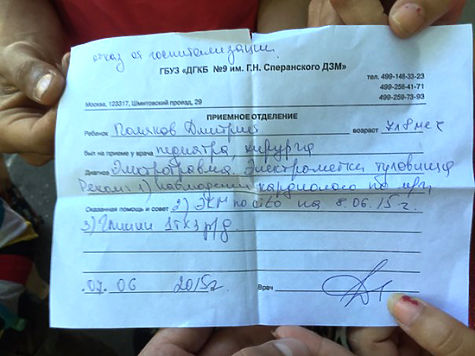 отказ от госпитализации
ГБУЗ «ДГКБ №9 им. Г.Н. Сперанского ДЗМ»
тел. 499-148-33-23
499-256-41-71
499-259-73-93
Москва, 123317, Шмитовский проезд, 29
ПРИЕМНОЕ ОТДЕЛЕНИЕ
Ребенок Поляков Дмитрий возраст 7л8мес
был на приеме у врача педиатра, хирурга
Диагноз Электротравма. Электрометки туловища
Реком: 1) наблюдение кардиолога по м/ж
Оказанная помощь и совет 2) ЭКГ по cito на 8.06.15г.
3) Глицин 1т х 3 р/д.
07.06 2015г. Врач